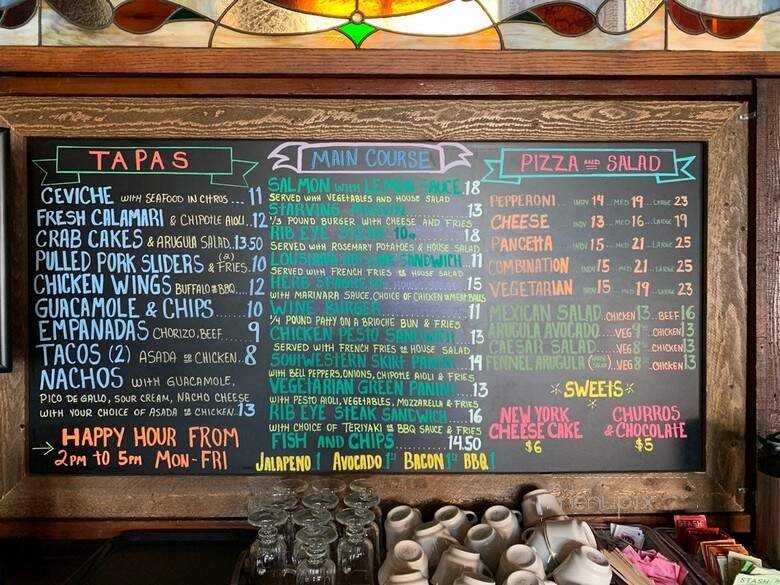 TAPAS
CEVICHE WITH SEAFOOD IN CITROS...11
FRESH CALAMARI & CHIPOTLE AIOLI..12
CRAB CAKES & ARUGULA SALAD.13.50
PULLED PORK SLIDERS (2) & FRIES.10
CHICKEN WINGS BUFFALO OR BBQ...12
GUACAMOLE & CHIPS.....10
EMPANADAS CHORIZO, BEEF....9
TACOS (2) ASADA OR CHICKEN..8
NACHOS WITH GUACAMOLE,
PICO DE GALLO, SOUR CREAM, NACHO CHEESE
WITH YOUR CHOICE OF ASADA OR CHICKEN.13
→ HAPPY HOUR FROM
2PM TO 5PM MON-FRI
MAIN COURSE
SALMON WITH LEMON SAUCE.18
SERVED WITH VEGETABLES AND HOUSE SALAD
STARVING 13
1/3 POUND BURGER WITH CHEESE AND FRIES
RIB EYE STEAK 10oz 18
SERVED WITH ROSEMARY POTATOES & HOUSE SALAD
LOUSIANA SANDWICH...11
SERVED WITH FRENCH FRIES OR HOUSE SALAD
HERB 15
WITH MARINARA SAUCE, CHOICE OF CHICKEN OR MEAT BALLS
BURGER 11
1/4 POUND PATTY ON A BRIOCHE BUN & FRIES
CHICKEN PESTO SANDWICH 13
SERVED WITH FRENCH FRIES OR HOUSE SALAD
SOUTHWESTERN SKIRT PANINI 14
WITH BELL PEPPERS, ONIONS, CHIPOTLE AIOLI & FRIES
VEGETARIAN GREEN PANINI...13
WITH PESTO AIOLI, VEGETABLES, MOZZARELLA & FRIES
RIB EYE STEAK SANDWICH....16
WITH CHOICE OF TERIYAKI OR BBQ SAUCE & FRIES
FISH AND CHIPS.......14.50
JALAPENO 1 AVOCADO 1 BACON 1 BBQ 1
PIZZA AND SALAD
PEPPERONI INDV 14 ..MED 19 ..LARGE 23
CHEESE INDV 13 ..MED 16 ..LARGE 19
PANCETTA INDV 15 ..MED 21 ..LARGE 25
COMBINATION INDV 15 ..MED 21 ..LARGE 25
VEGETARIAN INDV 15 ..MED 19 ..LARGE 23
MEXICAN SALAD.CHICKEN 13. BEEF 16
ARUGULA AVOCADO...VEG 9...CHICKEN 13
CAESAR SALAD.....VEG 8...CHICKEN 13
FENNEL ARUGULA VEG 8...CHICKEN 13
SWEETS
NEW YORK
CHEESE CAKE
$6
CHURROS
& CHOCOLATE
$5
menupix
STASH
STASH